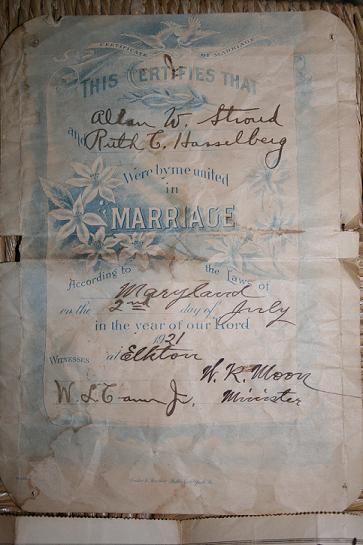 CERTIFICATE OF MARRIAGE
THIS CERTIFIES THAT
Allan W. Stroud
and Ruth C. Hasselberg
Were by me united
in
MARRIAGE
According to the Laws of
Maryland
on the 2nd day of July
in the year of our Lord
1931
WITNESSES at Elkton
W. K. Moon
W. L. Jr. Minister